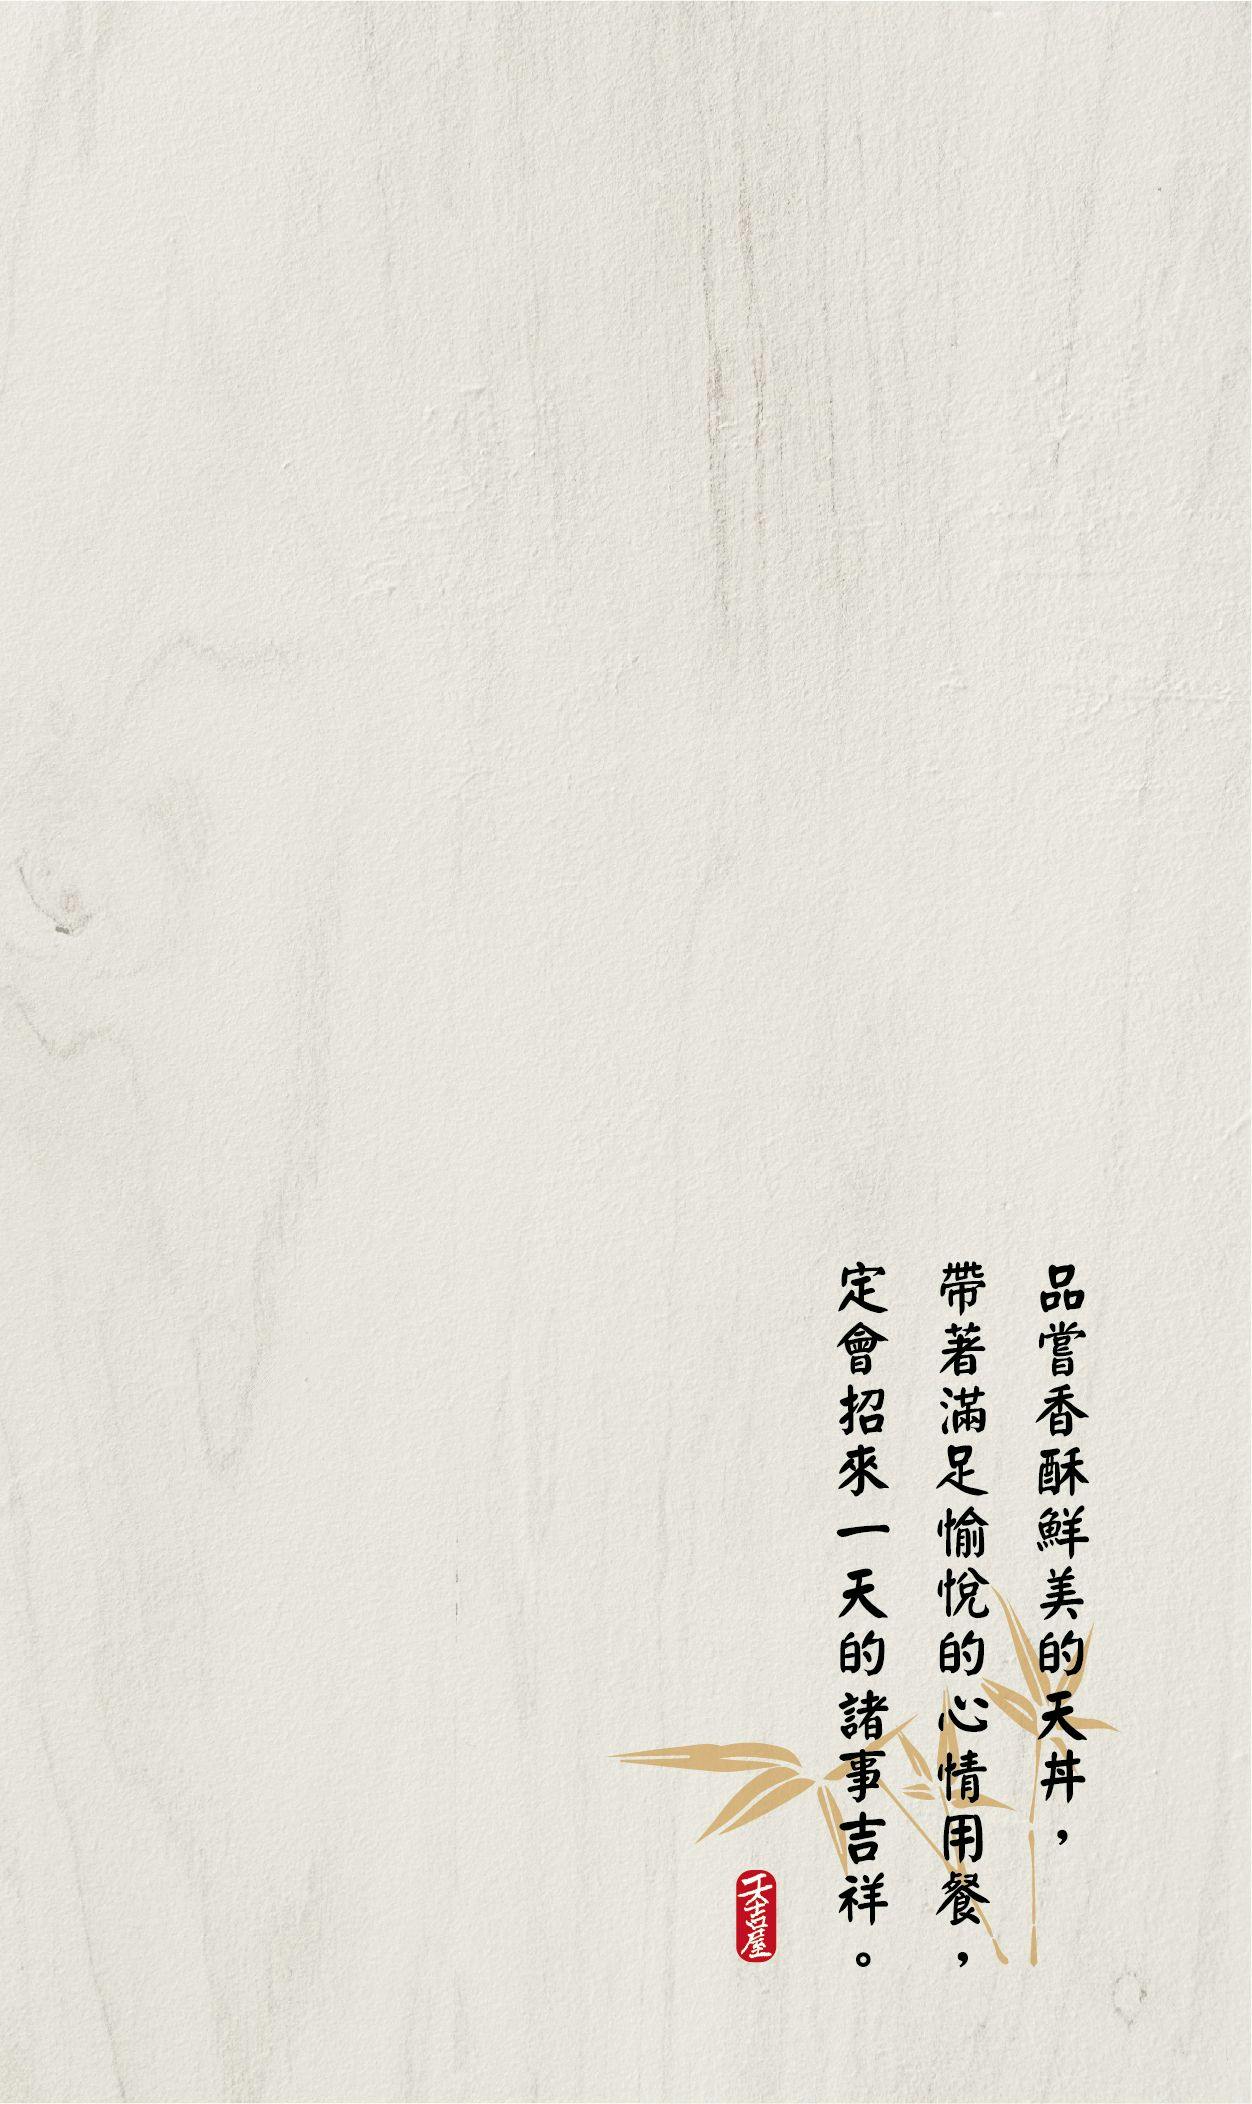 品嘗香酥鮮美的天丼，
帶著滿足愉悅的心情用餐，
定會招來一天的諸事吉祥。
天吉屋